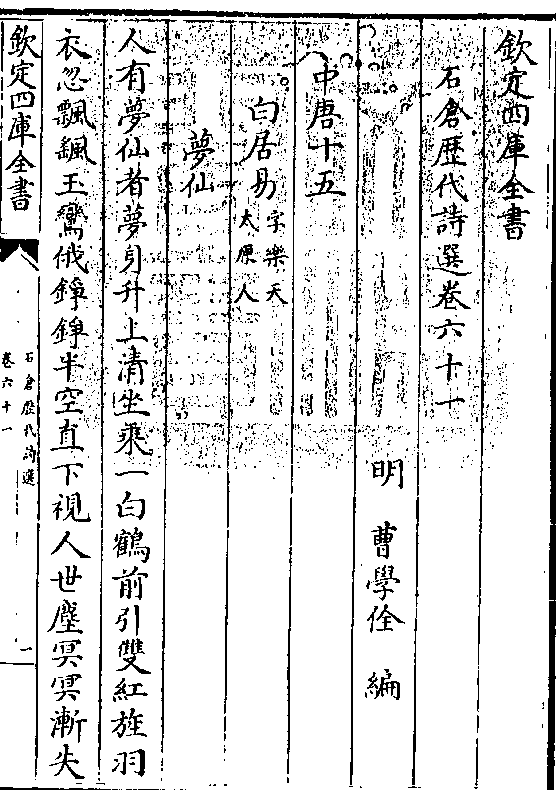 欽定四庫全書
石倉歴代詩選卷六十一
明 曹學佺 編
中唐十五
白居易字樂天太原人
夢仙
人有夢仙者夢身升上清坐乘一白鶴前引雙紅旌羽
衣忽飄飄玉鸞俄錚錚半空直下視人世塵冥冥漸失
欽定四庫全書
石倉歴代詩選
卷六十一
一